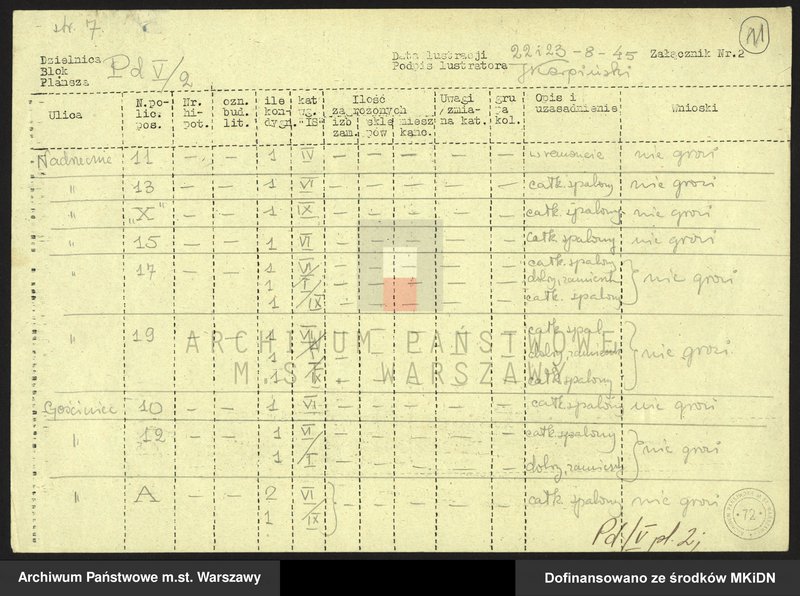 str. 7.
11
Dzielnica
Blok
Plansza
Pd V/2
Data lustracji 22 i 23 -8-45 Załącznik Nr.2
Podpis lustratora JKarpiński
Ulica N.po-lic. pos. Nr. hi-pot. ozn. bud. lit. ile kon-dygn. kat wg. "IS" Ilość zagrożonych izb zam. skle pów miesz kanc. Uwagi /zmia-na kat. gru pa kol. Opis i uzasadnienie Wnioski
Nadrzeczne 11 - - 1 IV - - - - - w remoncie nie grozi
" 13 - - 1 VI - - - - - całk. spalony nie grozi
" "X" - - 1 IX - - - - - całk. spalony nie grozi
" 15 - - 1 VI - - - - - całk. spalony nie grozi
" 17 - - 1 VI - - - - - całk. spalony
1 I - - - - - dobry, zamieszk. nie grozi
1 IX - - - - - całk. spalony
" 19 - - 1 VI - - - - - całk. spal.
1 I - - - - - dobry, zamieszk. nie grozi
1 IX - - - - - całk. spalony
Gościniec 10 - - 1 VI - - - - - całk. spalony nie grozi
" 12 - - 1 VI - - - - - całk. spalony
1 I - - - - - dobry, zamieszk. nie grozi
" A - - 2 VI - - - - - całk. spalony nie grozi
1 IX
ARCHIWUM PAŃSTWOWE
M.ST. WARSZAWY
72
Pd/V pl. 2;
Archiwum Państwowe m.st. Warszawy
Dofinansowano ze środków MKiDN